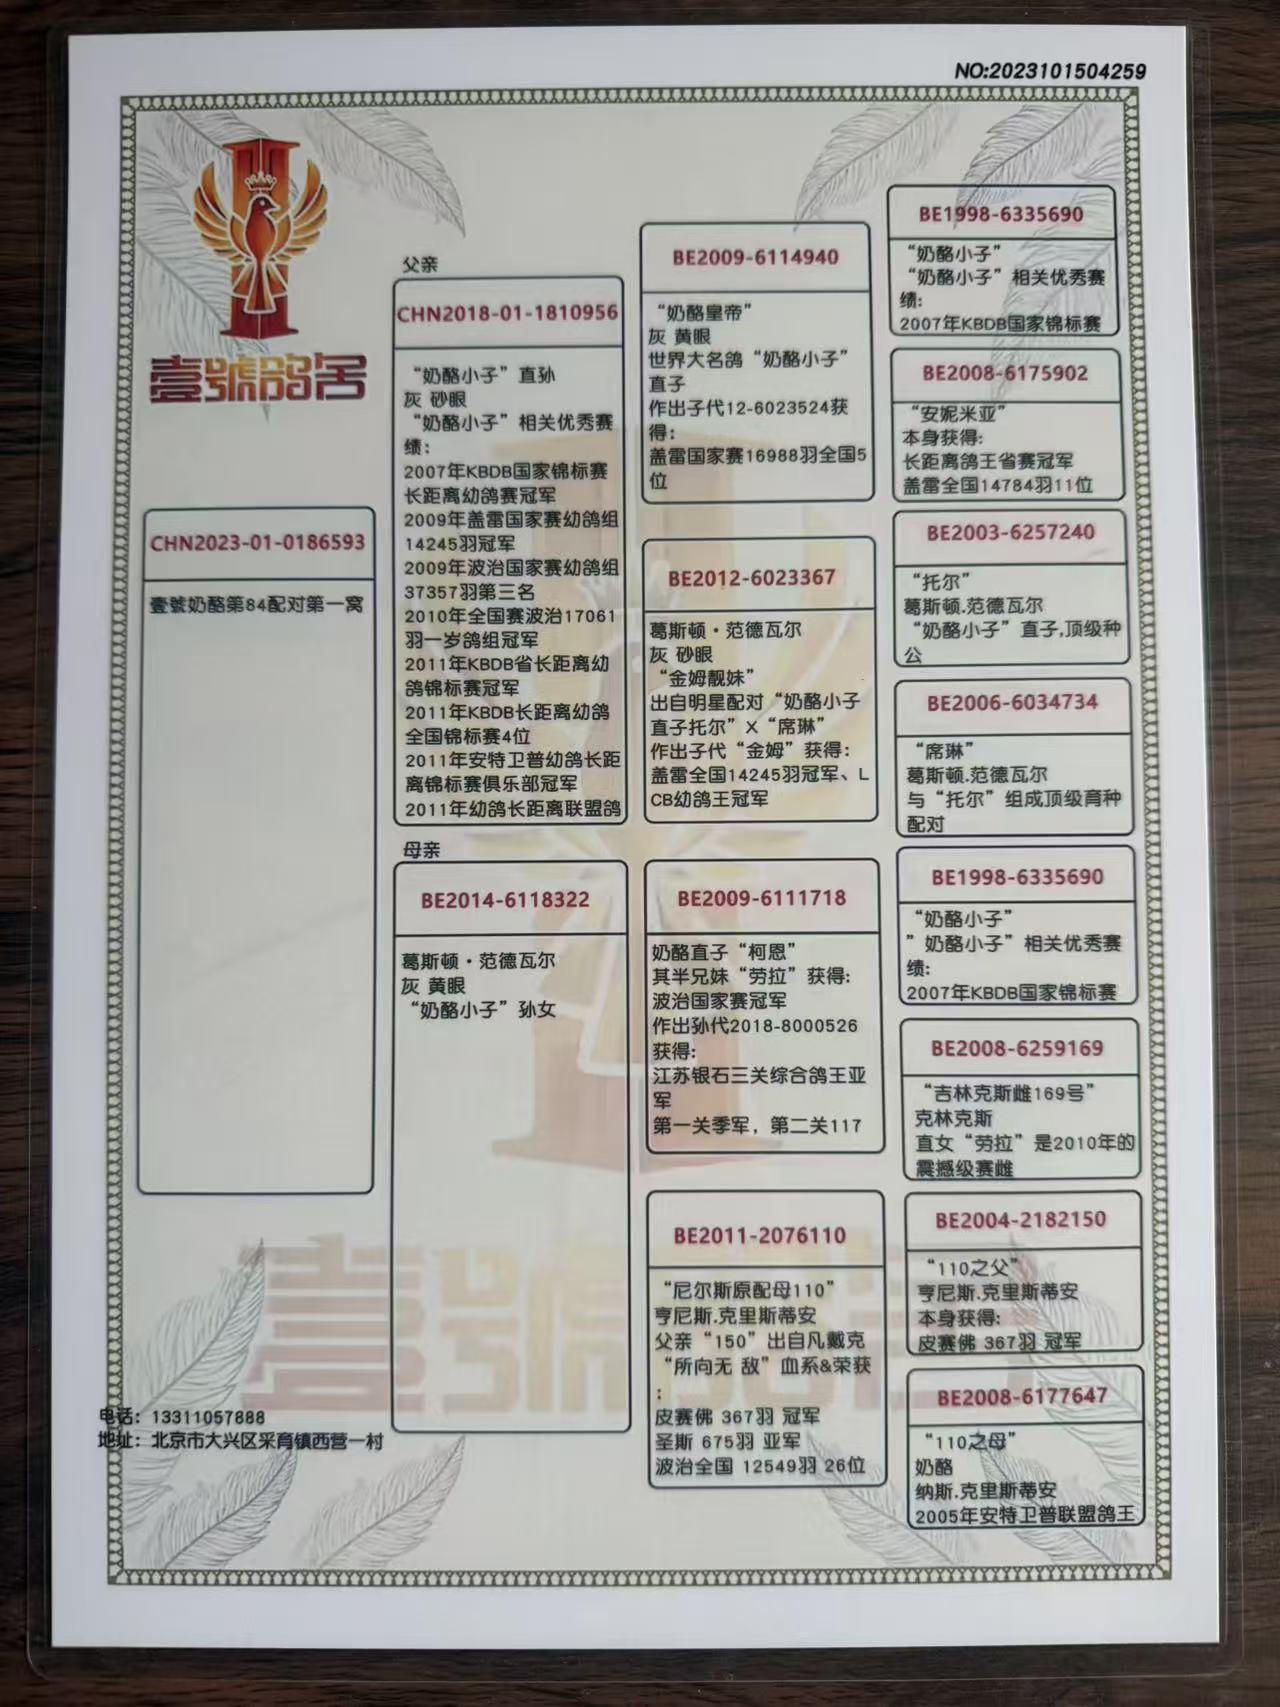 NO:2023101504259
壹號鸽舍
CHN2023-01-0186593
壹號奶酪第84配对第一窝
父亲
CHN2018-01-1810956
“奶酪小子”直孙
灰 砂眼
“奶酪小子”相关优秀赛
绩:
2007年KBDB国家锦标赛
长距离幼鸽赛冠军
2009年盖雷国家赛幼鸽组
14245羽冠军
2009年波治国家赛幼鸽组
37357羽第三名
2010年全国赛波治17061
羽一岁鸽组冠军
2011年KBDB省长距离幼
鸽锦标赛冠军
2011年KBDB长距离幼鸽
全国锦标赛4位
2011年安特卫普幼鸽长距
离锦标赛俱乐部冠军
2011年幼鸽长距离联盟鸽
母亲
BE2014-6118322
葛斯顿·范德瓦尔
灰 黄眼
“奶酪小子”孙女
BE2009-6114940
“奶酪皇帝”
灰 黄眼
世界大名鸽“奶酪小子”
直子
作出子代12-6023524获
得:
盖雷国家赛16988羽全国5
位
BE2012-6023367
葛斯顿·范德瓦尔
灰 砂眼
“金姆靓妹”
出自明星配对“奶酪小子
直子托尔”X“席琳”
作出子代“金姆”获得:
盖雷全国14245羽冠军、L
CB幼鸽王冠军
BE2009-6111718
奶酪直子“柯恩”
其半兄妹“劳拉”获得:
波治国家赛冠军
作出孙代2018-8000526
获得:
江苏银石三关综合鸽王亚
军
第一关季军，第二关117
BE2011-2076110
“尼尔斯原配母110”
亨尼斯.克里斯蒂安
父亲“150”出自凡戴克
“所向无 敌”血系&荣获
:
皮赛佛 367羽 冠军
圣斯 675羽 亚军
波治全国 12549羽 26位
BE1998-6335690
“奶酪小子”
“奶酪小子”相关优秀赛
绩:
2007年KBDB国家锦标赛
BE2008-6175902
“安妮米亚”
本身获得:
长距离鸽王省赛冠军
盖雷全国14784羽11位
BE2003-6257240
“托尔”
葛斯顿.范德瓦尔
“奶酪小子”直子,顶级种
公
BE2006-6034734
“席琳”
葛斯顿.范德瓦尔
与“托尔”组成顶级育种
配对
BE1998-6335690
“奶酪小子”
”奶酪小子”相关优秀赛
绩:
2007年KBDB国家锦标赛
BE2008-6259169
“吉林克斯雌169号”
克林克斯
直女“劳拉”是2010年的
震撼级赛雌
BE2004-2182150
“110之父”
亨尼斯.克里斯蒂安
本身获得:
皮赛佛 367羽 冠军
BE2008-6177647
“110之母”
奶酪
纳斯.克里斯蒂安
2005年安特卫普联盟鸽王
电话: 13311057888
地址: 北京市大兴区采育镇西营一村